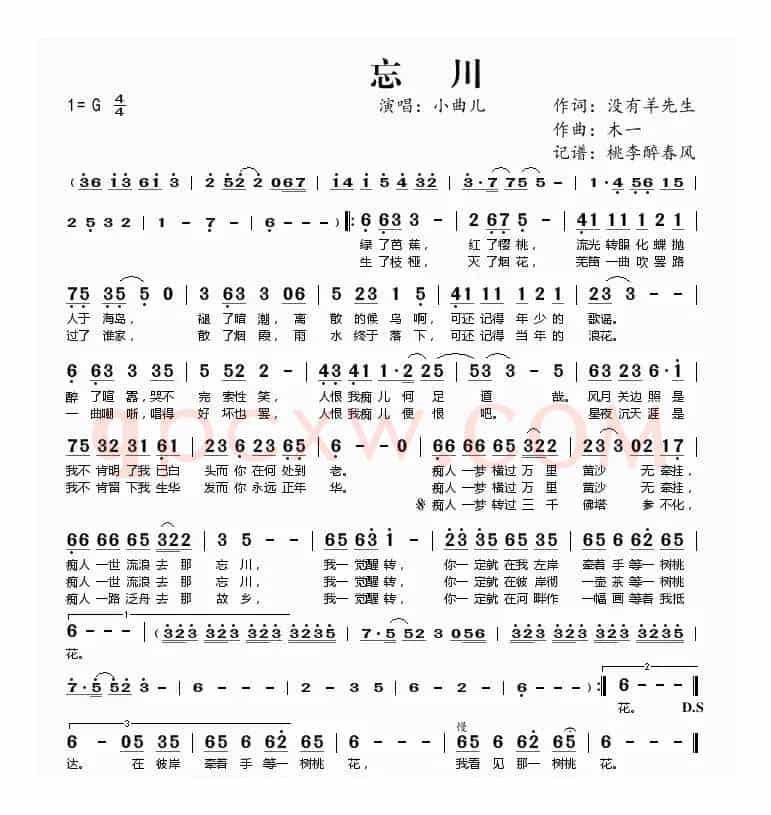 忘 川
1=G 4/4 演唱：小曲儿 作词：没有羊先生
作曲：木一
记谱：桃李醉春风
(36 13 61 3 | 2 52 2 067 | 14 1 5 4 32 | 3·7 75 5 - | 1·4 56 165
2 5 32 | 1 - 7 - | 6 - - - |: 6 63 3 - | 2 67 5 - | 41 11 1 21
绿了芭蕉， 红了樱桃， 流光转眼化蝶抛
生了枝桠， 灭了烟花， 羌笛一曲吹罢路
75 35 5 0 | 3 63 3 06 | 5 23 1 5 | 41 11 1 21 | 23 3 - -
人于海岛， 褪了喧潮，离 散的候鸟啊，可还记得年少的 歌谣。
过了谁家， 散了烟霞，雨 水终于落下，可还记得当年的 浪花。
6 63 3 35 | 5 52 2 - | 43 41 1·2 25 | 53 3 - 5 | 63 23 6·1
醉了喧嚣，哭不 完索性笑， 人恨我痴儿何足 道 哉。 风月关边照是
一曲嘲哳，唱得 好坏也罢， 人恨我痴儿便恨 吧。 星夜沉天涯是
75 32 31 61 | 23 6 23 65 | 6 - - 0 | 66 66 65 322 | 23 3 02 17
我不肯明了我已白 头而你在何处到 老。 痴人一梦横过万里 黄沙 无牵挂，
我不肯留下我生华 发而你永远正年 华。 痴人一梦横过万里 黄沙 无牵挂，
𝄋痴人一梦转过三千 佛塔 参不化，
66 66 65 322 | 3 5 - - | 65 63 - | 23 35 65 | 65 63 61 62
痴人一世流浪去那 忘川， 我一觉醒转， 你一定就在我左岸 牵着手等一树桃
痴人一世流浪去那 忘川， 我一觉醒转， 你一定就在彼岸彻 一壶茶等一树桃
痴人一路泛舟去那 故乡， 我一觉醒转， 你一定就在河畔作 一幅画等着我抵
1
6 - - - | (323 323 323 323 | 7·5 52 3 056 | 323 323 323 3235
花。
7·5 52 3 - | 6 - - - | 2 - 3 - | 6 - - - | 5 - - - | 6 - - -) :| 2 6 - - -
花。 D.S
3 慢
6 - 05 35 | 65 6 6 62 | 6 - - - | 65 6 62 65 | 6 - - -
达。 在彼岸 牵着手等一树桃 花， 我看见那一树桃 花。
qpcxw.COM